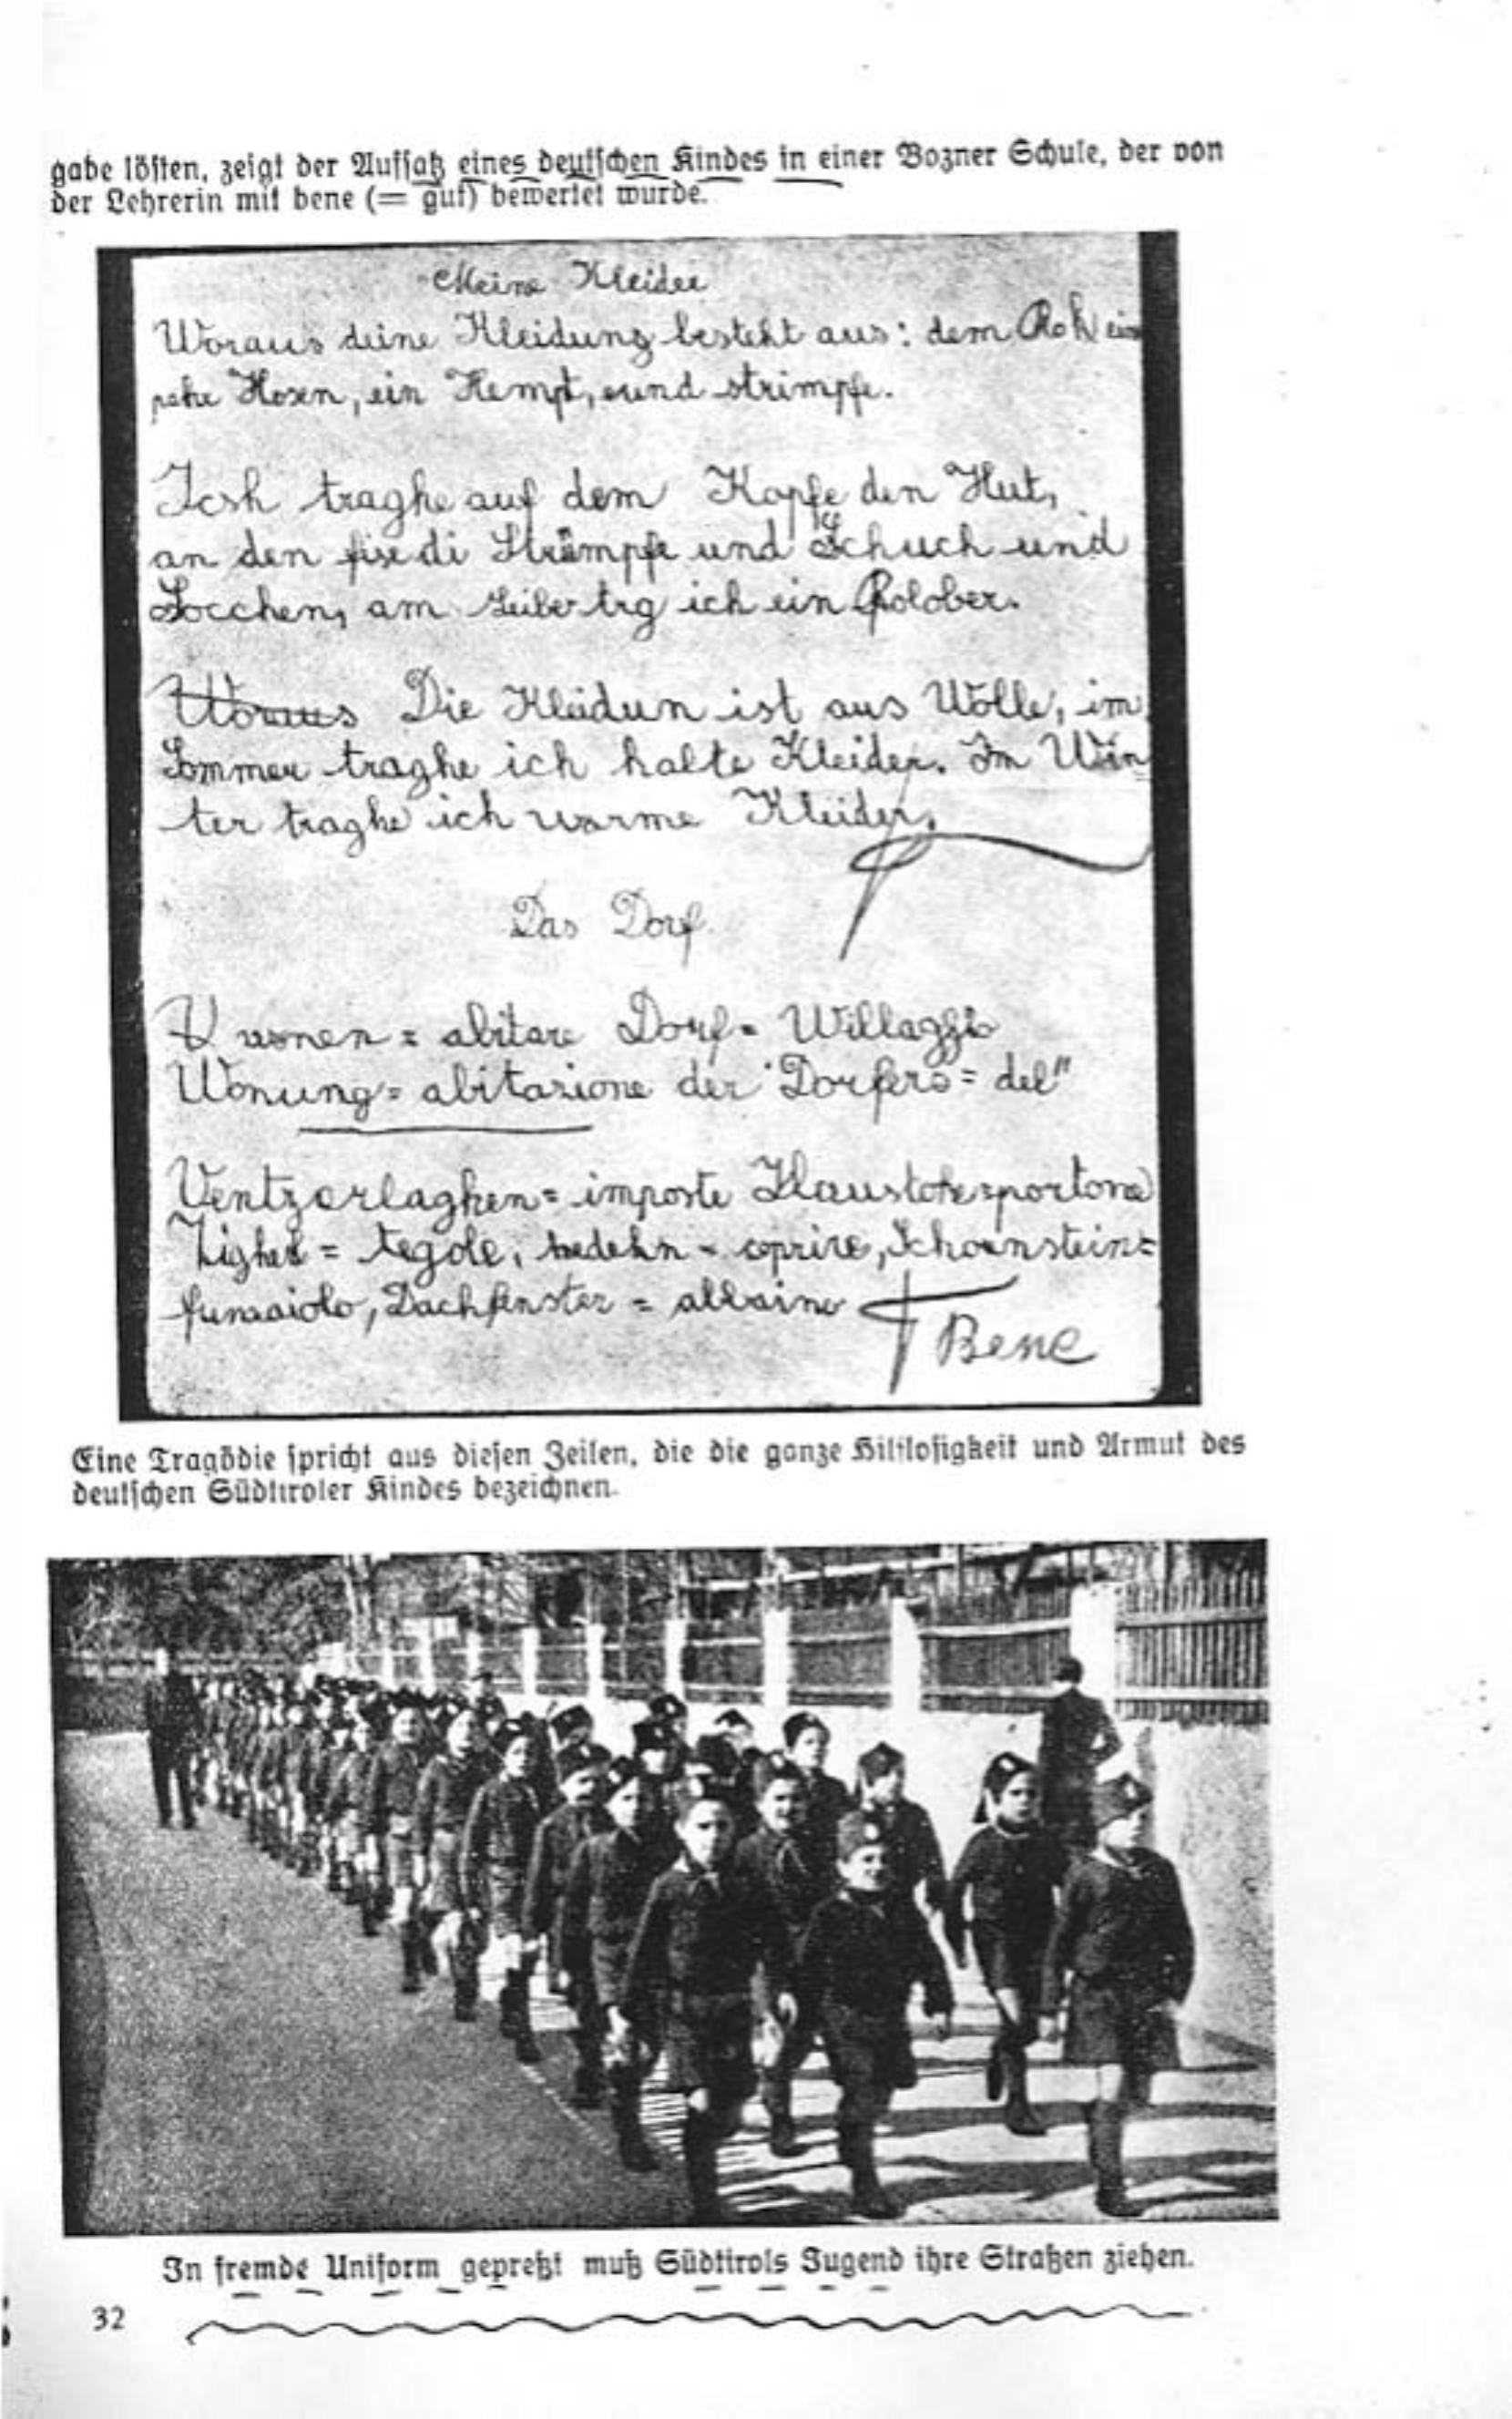 gabe lösten, zeigt der Aufsatz eines deutschen Kindes in einer Bozner Schule, der von
der Lehrerin mit bene (= gut) bewertet wurde.
Meine Kleider
Woraus deine Kleidung besteht aus: dem Rok ein
Hosen, ein Hempt, und strimpfe.
Icsh traghe auf dem Kopfe den Hut,
an den fise di Strümpfe und Schuch und
Socchen, am Leiber trg ich ein Polober.
Woraus Die Kleidun ist aus Wolle, im
Sommer traghe ich halte Kleider. Im Win
ter traghe ich warme Kleider.
Das Dorf
= abitare Dorf = Willaggio
Wonung = abitazione der Dorfers = del"
Ventzerlaghen = imposte Haustore = portone
= tegole, = coprire, Schornstein =
fumaiolo, Dachfenster = abbaino
Bene
Eine Tragödie spricht aus diesen Zeilen, die die ganze Hilflosigkeit und Armut des
deutschen Südtiroler Kindes bezeichnen.
In fremde Uniform gepreßt muß Südtirols Jugend ihre Straßen ziehen.
32